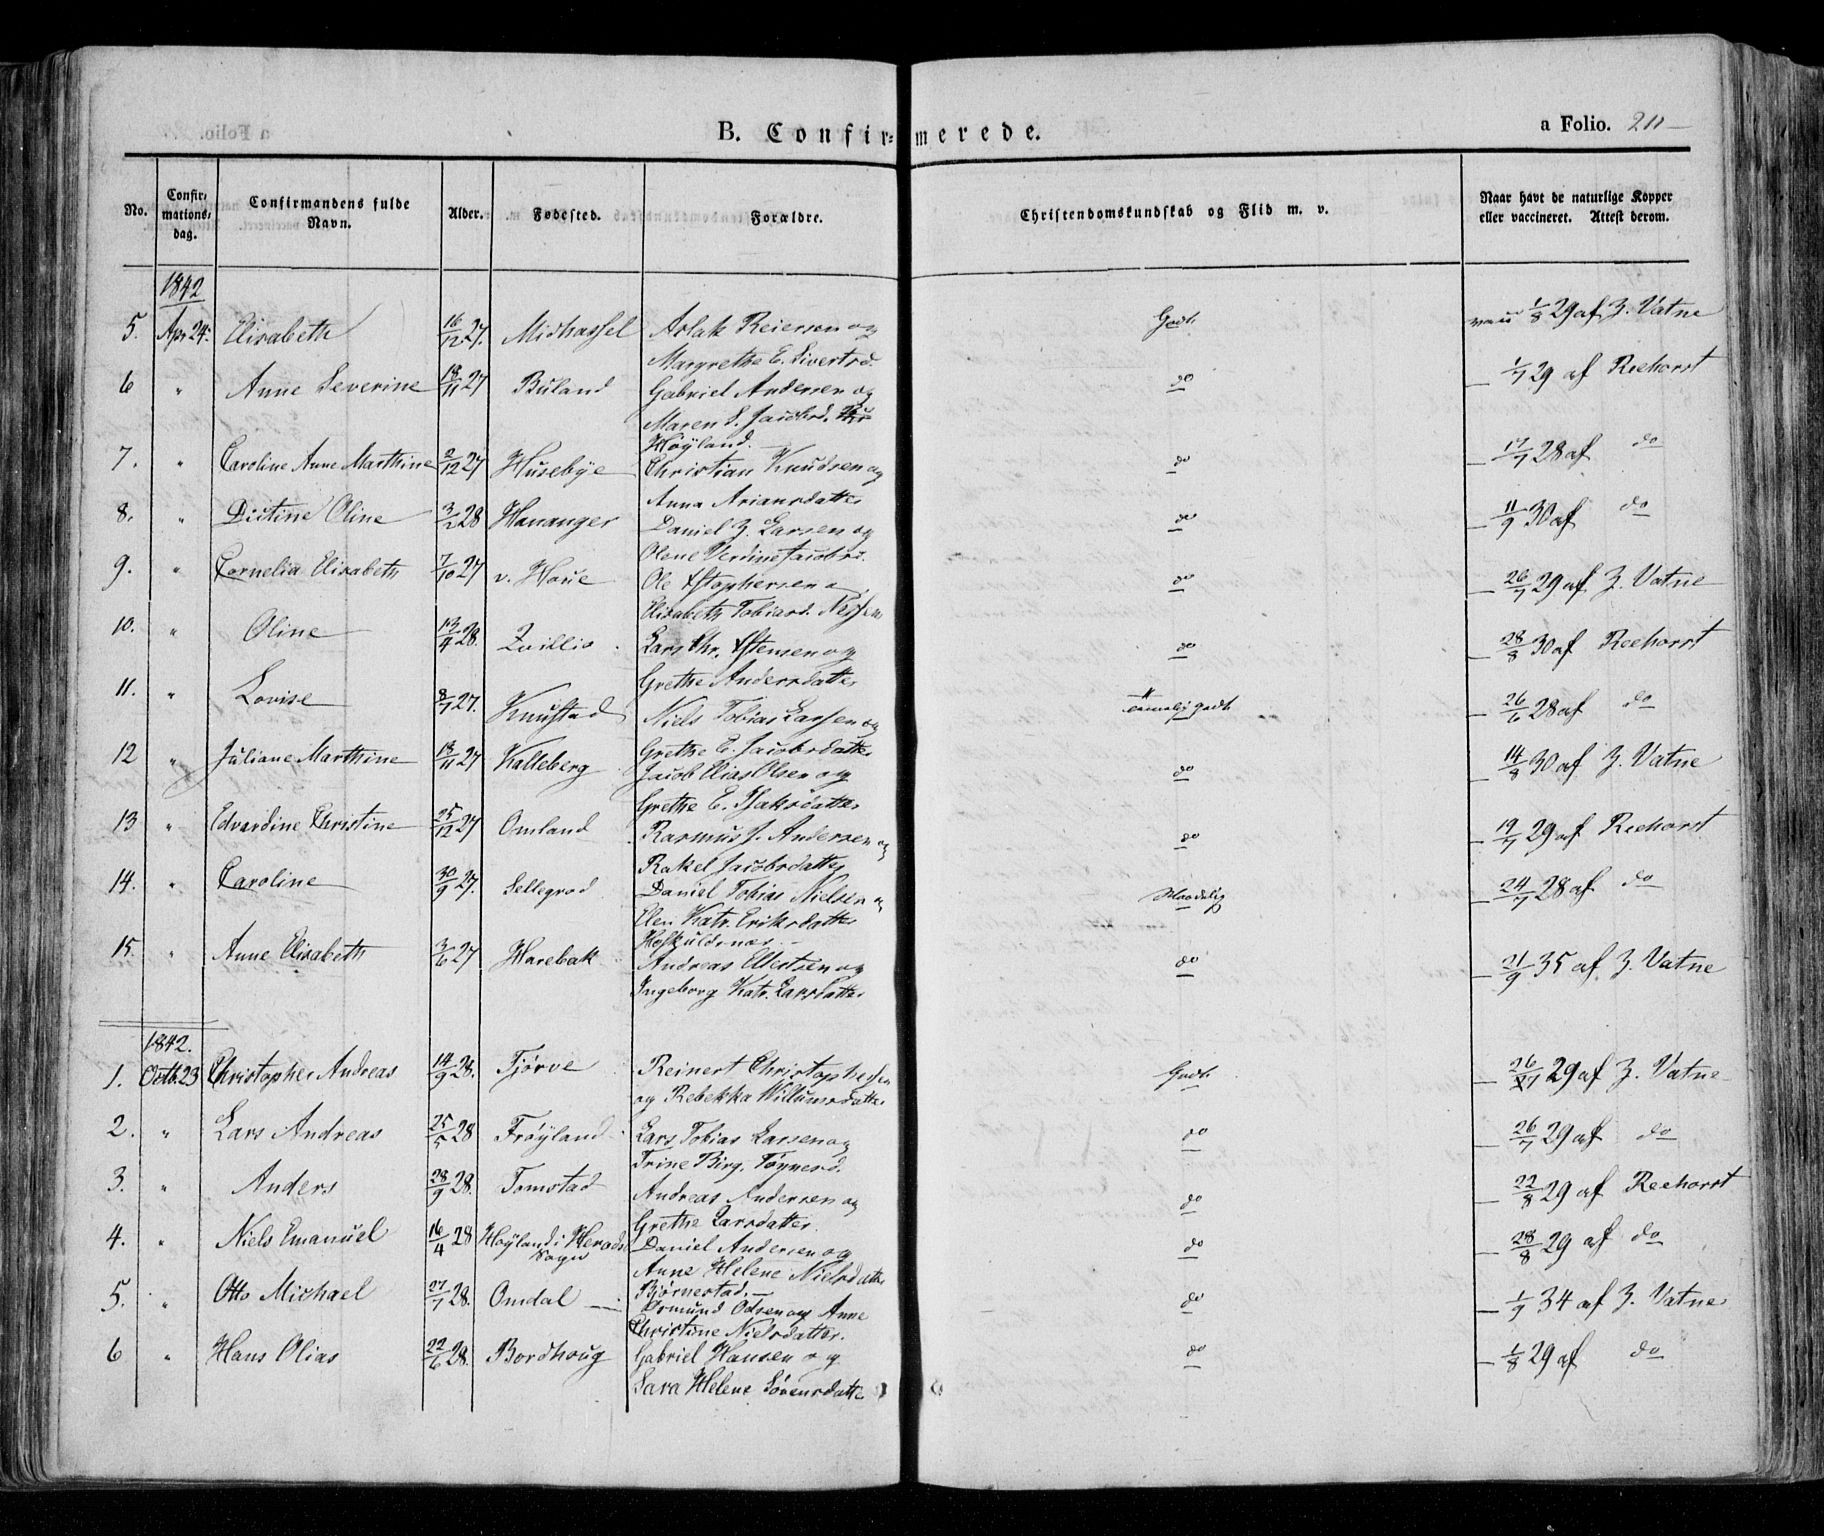 B. Confirmerede.
a Folio. 211
No.
Confirmations-dag.
Confirmandens fulde Navn.
Alder.
Fødested.
Forældre.
Christendomskundskab og Flid m. v.
Naar havt de naturlige Kopper eller vaccineret. Attest derom.
1842
5. Apr 24. Elisabeth 16/12 27. Midhassel Aslak Reiersen og Godt. 1/8 29 af Z. Vatne
Margrethe E. Sivertsd.
6 " Anne Severine 18/11 27 Buland Gabriel Andersen og do — 1/7 29 af Reehorst
Maren S. Jacobsd.
Høyland.
7. " Caroline Anne Marthine 2/12 27 Husebye Christian Knudsen og do — 17/7 28 af do
Anna Ariansdatter
8. " Dictine Oline 3/2 28 Hananger Daniel Z. Larsen og do — 11/9 30 af do
Olene Verdine Jacobsd.
9. " Cornelia Elisabeth 7/10 27 v. Houe Ole do — 26/7 29 af Z. Vatne
Elisabeth Tobiasd.
10. " Oline 13/4 28. Lars Chr. og do — 28/8 30 af Reehorst
Grethe Andersdatter
11. " Lovise 8/7 27. Knustad Niels Tobias Larsen og temmelig godt — 26/6 28 af do
Grethe E. Jacobsdatter
12 " Juliane Marthine 18/11 27 Kalleberg Jacob Elias Olsen og do — 14/8 30 af Z. Vatne
Grethe E. Isaksdatter
13 " Edvardine Christine 25/12 27 Omland Rasmus J. Andersen og do — 19/7 29 af Reehorst
Rakel Jacobsdatter
14. " Caroline 30/9 27. Sellegrod Daniel Tobias Nielsen Maadelig — 24/7 28 af do
Elen Katr. Eriksdatter
15. " Anne Elisabeth 3/6 27 Harebak Andreas Ellertsen og do — 21/9 35 af Z. Vatne
Ingeborg Katr. Larsdatter
1842.
1. Octb. 23 Christopher Andreas 14/9 28. Tjørve Reinert Christophersen Godt. — 29 af Z. Vatne
og Rebekka Willumsdatter
2. " Lars Andreas 25/5 28 Frøyland Lars Tobias Larsen og do — 26/7 29 af do
Trine Birg. Tønnesd.
3. " Anders 28/9 28. Tomstad Andreas Andersen og do — 22/8 29 af Reehorst
Grethe Larsdatter.
4. " Niels Emanuel 16/4 28 Høyland i Herads Daniel Andersen og do — 28/8 29 af do
Sogn Anne Helene Nielsdatter
Bjørnestad. —
5. " Otto Michael 27/7 28. Omdal — Osmund Odsen og Anne do — 1/9 34 af Z. Vatne
Christine Nielsdatter.
6 " Hans Olias 22/6 28. Bordhoug Gabriel Hansen og do — 1/8 29 af do
Sara Helene Sørensdatter